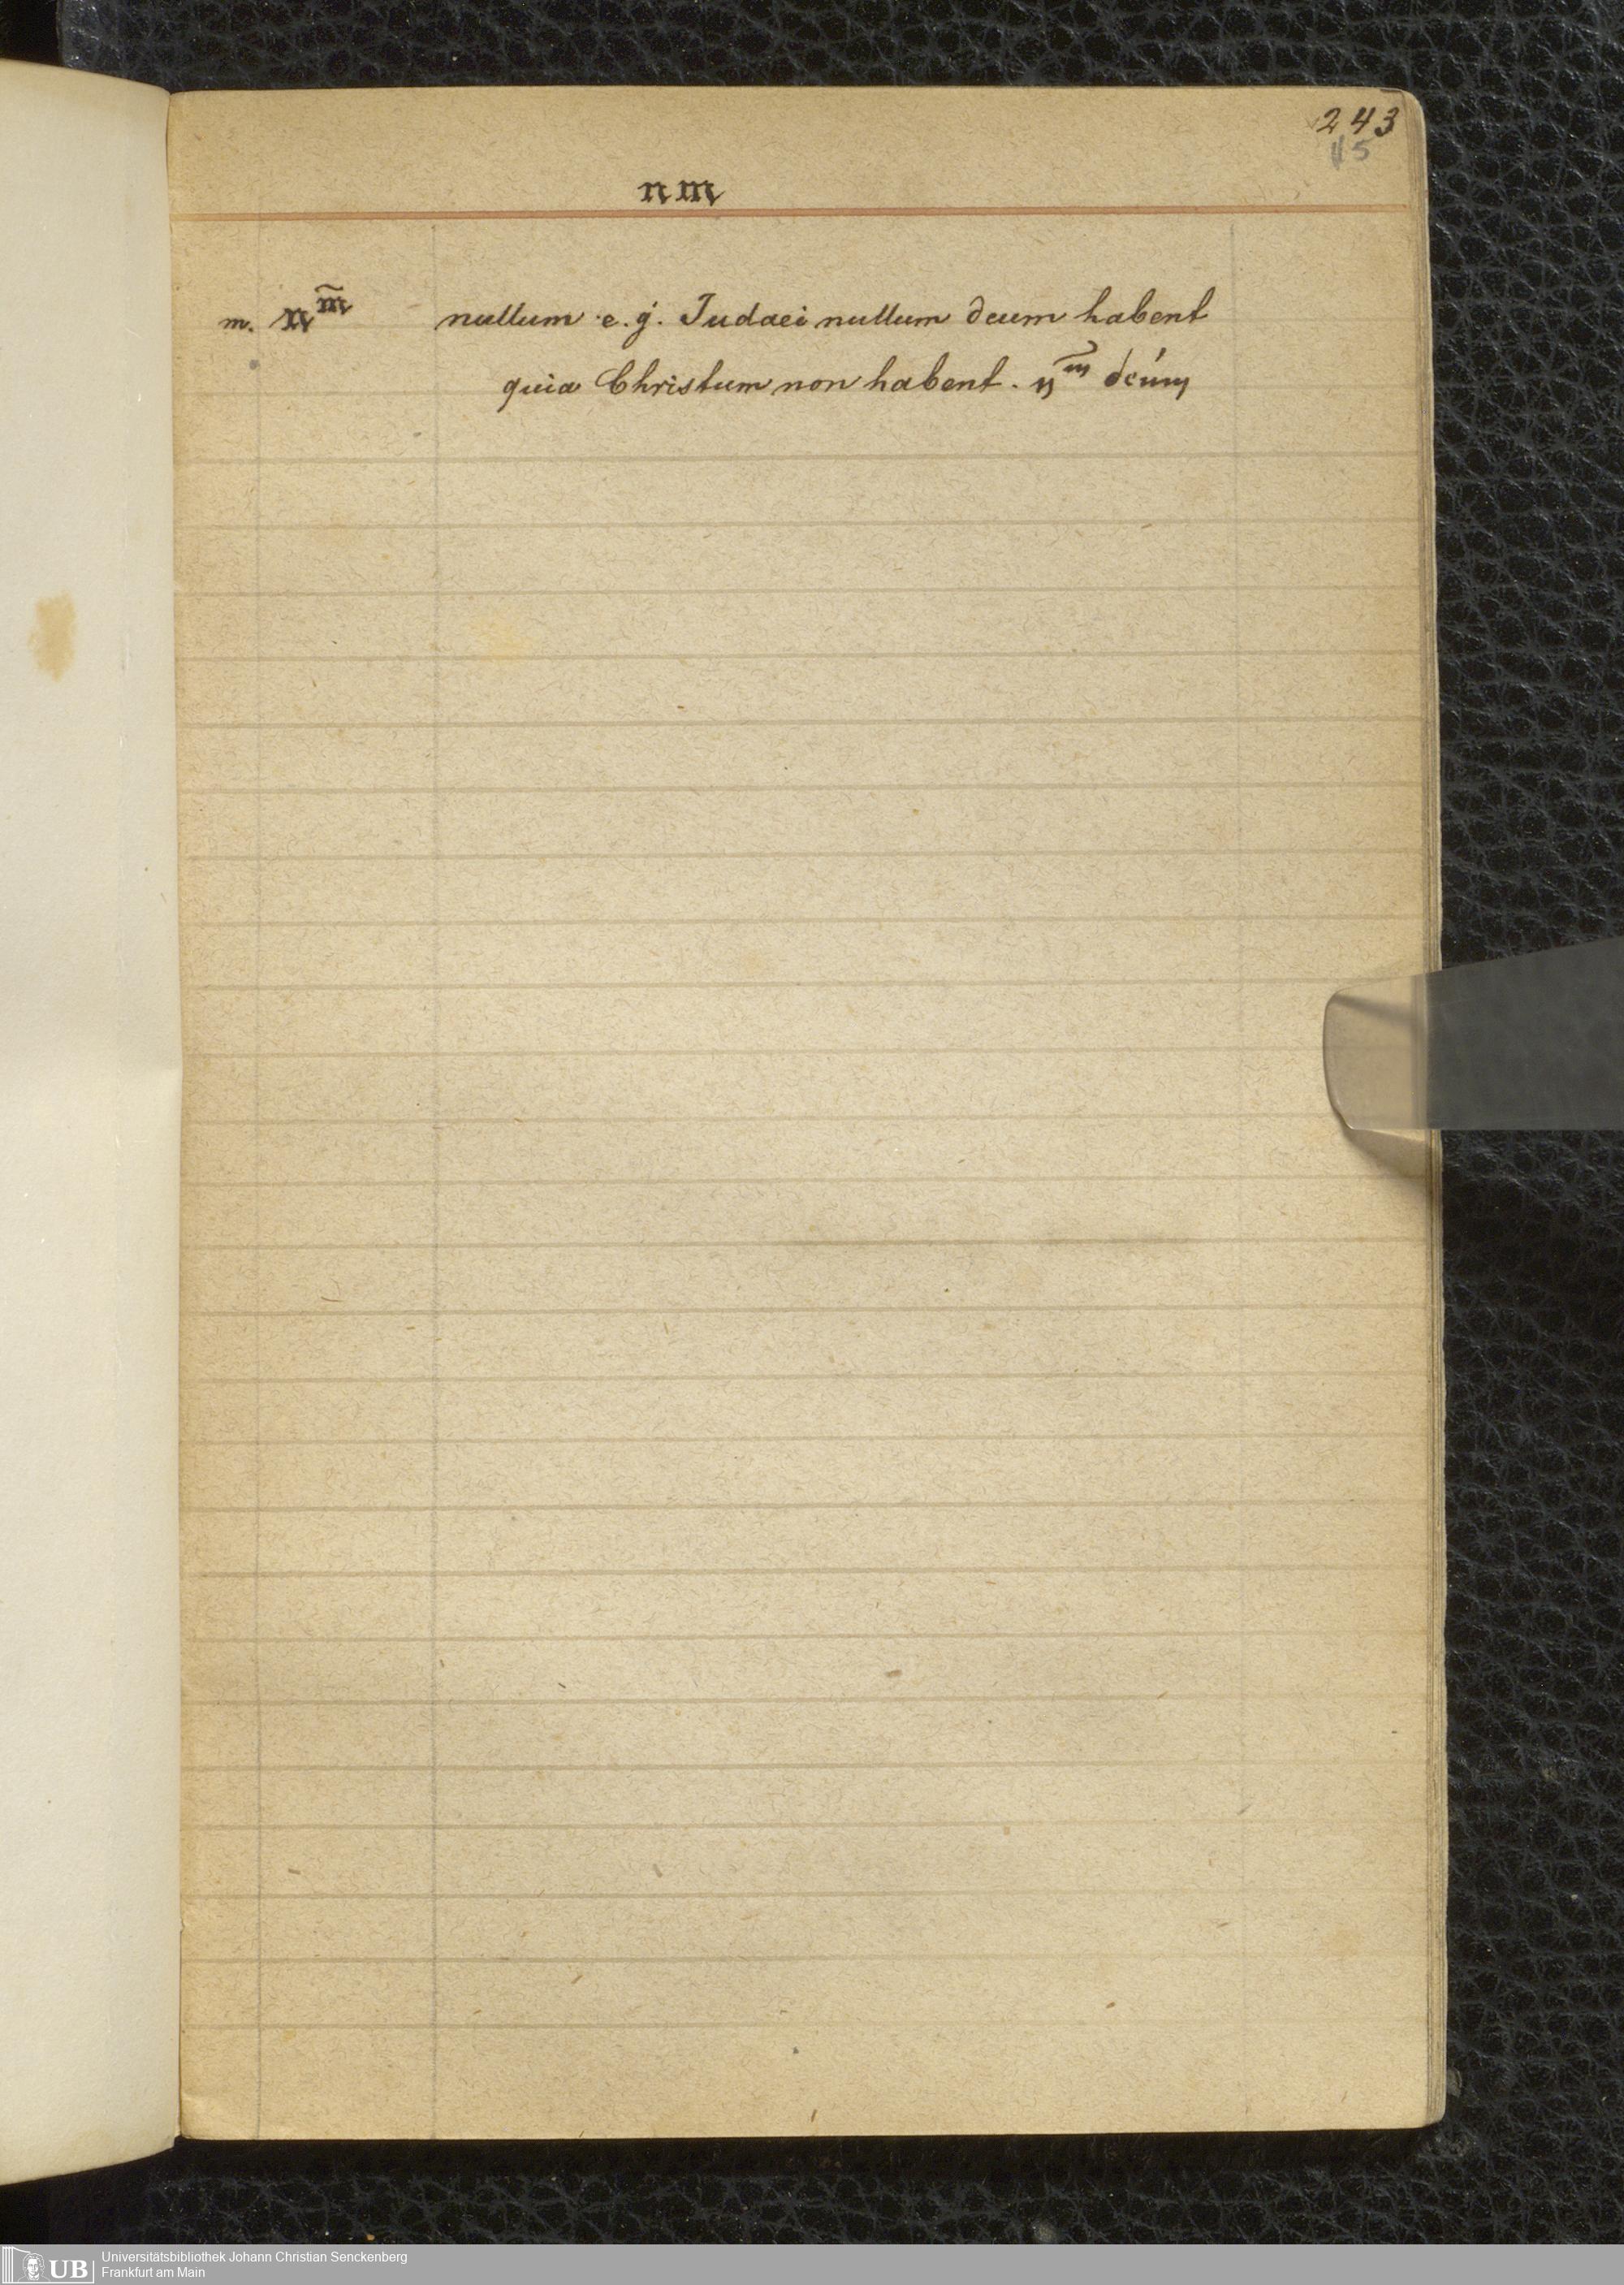 243
115
nm
m. n m̃ nullum e.g. Judaei nullum deum habent
quia Christum non habent. n m̃ deúm
Universitätsbibliothek Johann Christian Senckenberg
UB Frankfurt am Main